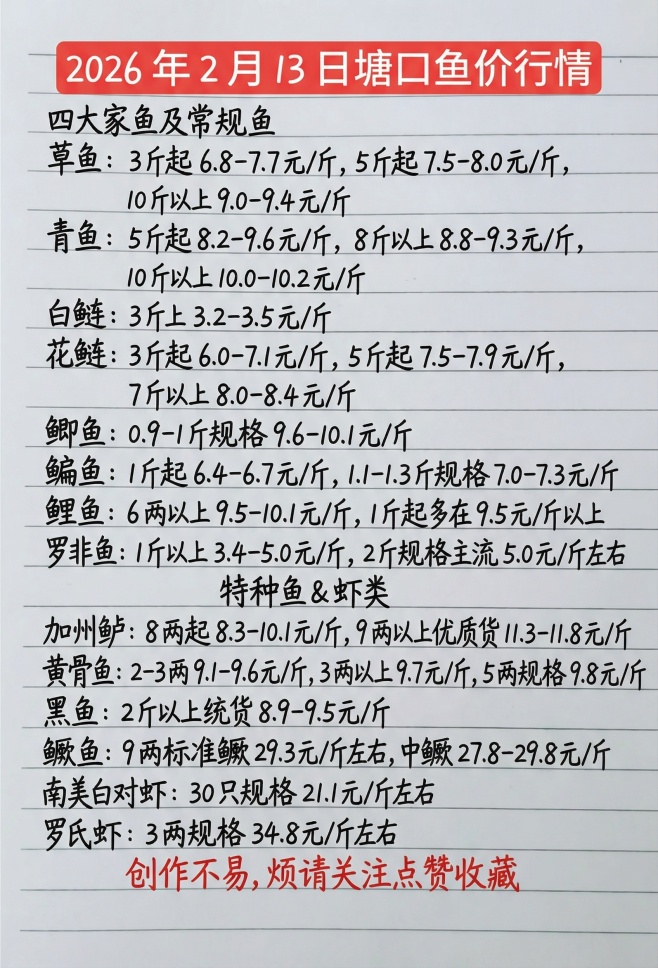 2026年2月13日塘口鱼价行情
四大家鱼及常规鱼
草鱼：3斤起6.8-7.7元/斤，5斤起7.5-8.0元/斤，
10斤以上9.0-9.4元/斤
青鱼：5斤起8.2-9.6元/斤，8斤以上8.8-9.3元/斤，
10斤以上10.0-10.2元/斤
白鲢：3斤上3.2-3.5元/斤
花鲢：3斤起6.0-7.1元/斤，5斤起7.5-7.9元/斤，
7斤以上8.0-8.4元/斤
鲫鱼：0.9-1斤规格9.6-10.1元/斤
鳊鱼：1斤起6.4-6.7元/斤，1.1-1.3斤规格7.0-7.3元/斤
鲤鱼：6两以上9.5-10.1元/斤，1斤起多在9.5元/斤以上
罗非鱼：1斤以上3.4-5.0元/斤，2斤规格主流5.0元/斤左右
特种鱼&虾类
加州鲈：8两起8.3-10.1元/斤，9两以上优质货11.3-11.8元/斤
黄骨鱼：2-3两9.1-9.6元/斤，3两以上9.7元/斤，5两规格9.8元/斤
黑鱼：2斤以上统货8.9-9.5元/斤
鳜鱼：9两标准鳜29.3元/斤左右，中鳜27.8-29.8元/斤
南美白对虾：30只规格21.1元/斤左右
罗氏虾：3两规格34.8元/斤左右
创作不易，烦请关注点赞收藏